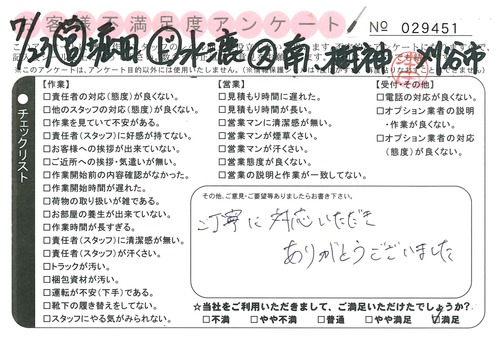 お客様不満足度アンケート
No 029451
7/23 堀田 水漉 南 樹神 刈谷市
チェックリスト
【作業】
□責任者の対応(態度)が良くない。
□他のスタッフの対応(態度)が良くない。
□作業を見ていて不安がある。
□責任者(スタッフ)に好感が持てない。
□お客様への挨拶が出来ていない。
□ご近所への挨拶・気遣いが無い。
□作業開始前の内容確認がなかった。
□作業開始時間が遅れた。
□荷物の取り扱いが雑である。
□お部屋の養生が出来ていない。
□作業時間が長すぎる。
□責任者(スタッフ)に清潔感が無い。
□責任者(スタッフ)が汗くさい。
□トラックが汚い。
□梱包資材が汚い。
□運転が不安(下手)である。
□靴下の履き替えをしてない。
□スタッフにやる気がみられない。
【営業】
□見積もり時間に遅れた。
□見積もり時間が長い。
□営業マンに清潔感が無い。
□営業マンが煙草くさい。
□営業マンが汗くさい。
□営業態度が良くない。
□営業の説明と作業が一致してない。
【受付・その他】
□電話の対応が良くない。
□オプション業者の説明
・作業が良くない。
□オプション業者の対応
(態度)が良くない。
その他、ご意見・ご要望等ありましたらお書き下さい。
ご丁寧に対応いただき
ありがとうございました
☆当社をご利用いただきまして、ご満足いただけたでしょうか?
□不満 □やや不満 □普通 □やや満足 ☑満足